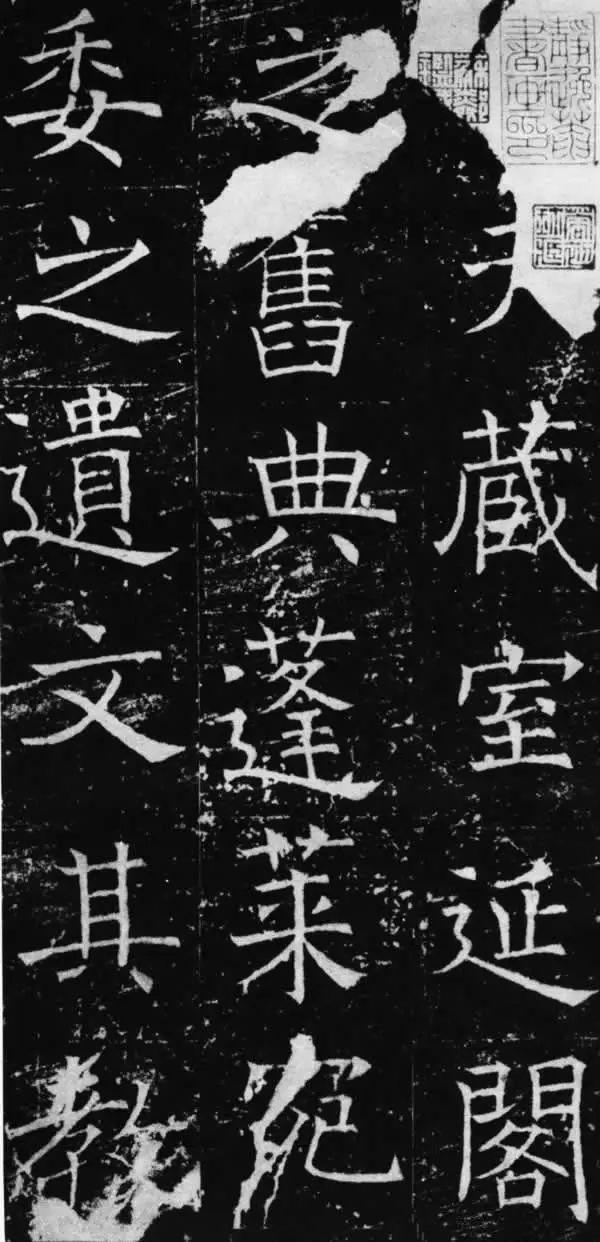 藏室延閣
之舊典蓬萊宛
委之遺文其教